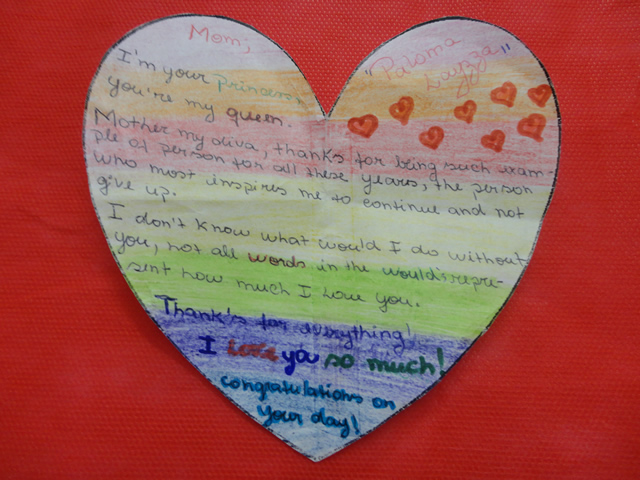 Mom,
"Paloma
Layzza"
I'm your princess
you're my queen.
Mother my diva, thanks for being such exam-
ple of person for all these years, the person
who most inspires me to continue and not
give up.
I don't know what would I do without
you, not all words in the would is repre-
sent how much I love you.
Thank's for everything!
I love ya so much!
congratulations on
your day!